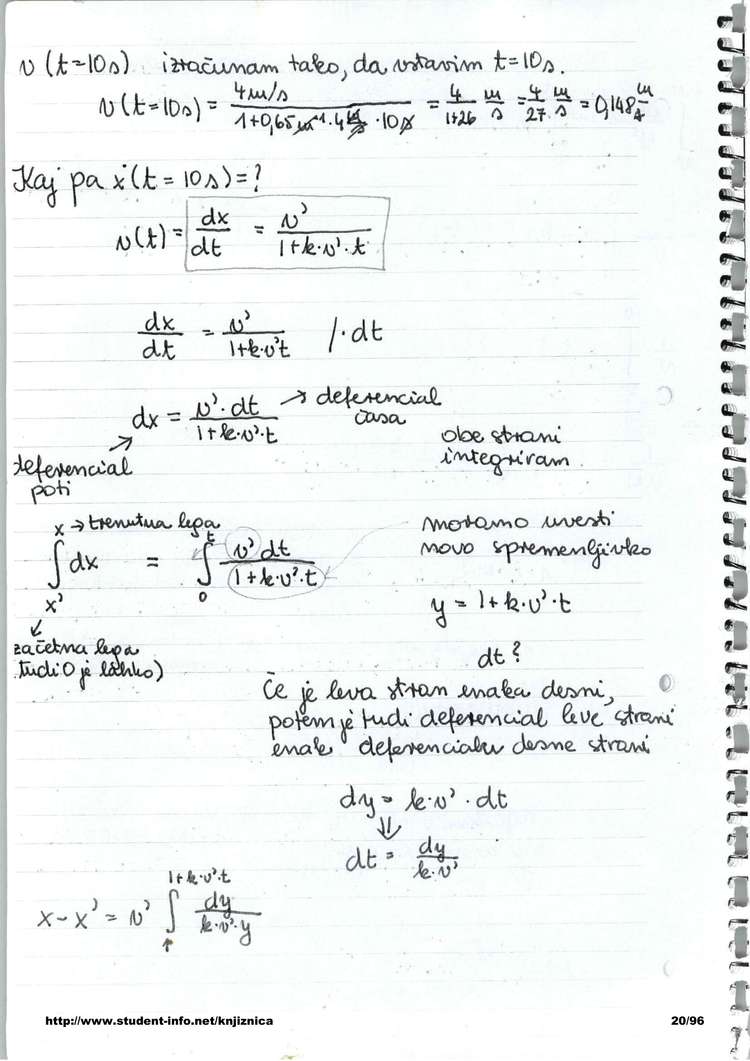 v (t=10s) izračunam tako, da vstavim t=10s.
v(t=10s) = 4m/s / 1+0,65m⁻¹·4m/s·10s = 4/1+26 m/s = 4/27 m/s = 0,148 m/s
Kaj pa x(t=10s)=?
v(t) = dx/dt = v'/1+k·v'·t
dx/dt = v'/1+k·v't /·dt
dx = v'·dt/1+k·v'·t → deferencial
časa
deferencial
poti
obe strani
integriram
x → trenutna lega
∫dx = ∫ v'dt/1+k·v'·t
x' 0 t
začetna lega
tudi 0 je lahko)
moramo uvesti
novo spremenljivko
y = 1+k·v'·t
dt?
Če je leva stran enaka desni,
potem je tudi deferencial leve strani
enak deferencialu desne strani
dy = k·v'·dt
⇓
dt = dy/k·v'
1+k·v'·t
x-x' = v' ∫ dy/k·v'·y
1
http://www.student-info.net/knjiznica 20/96